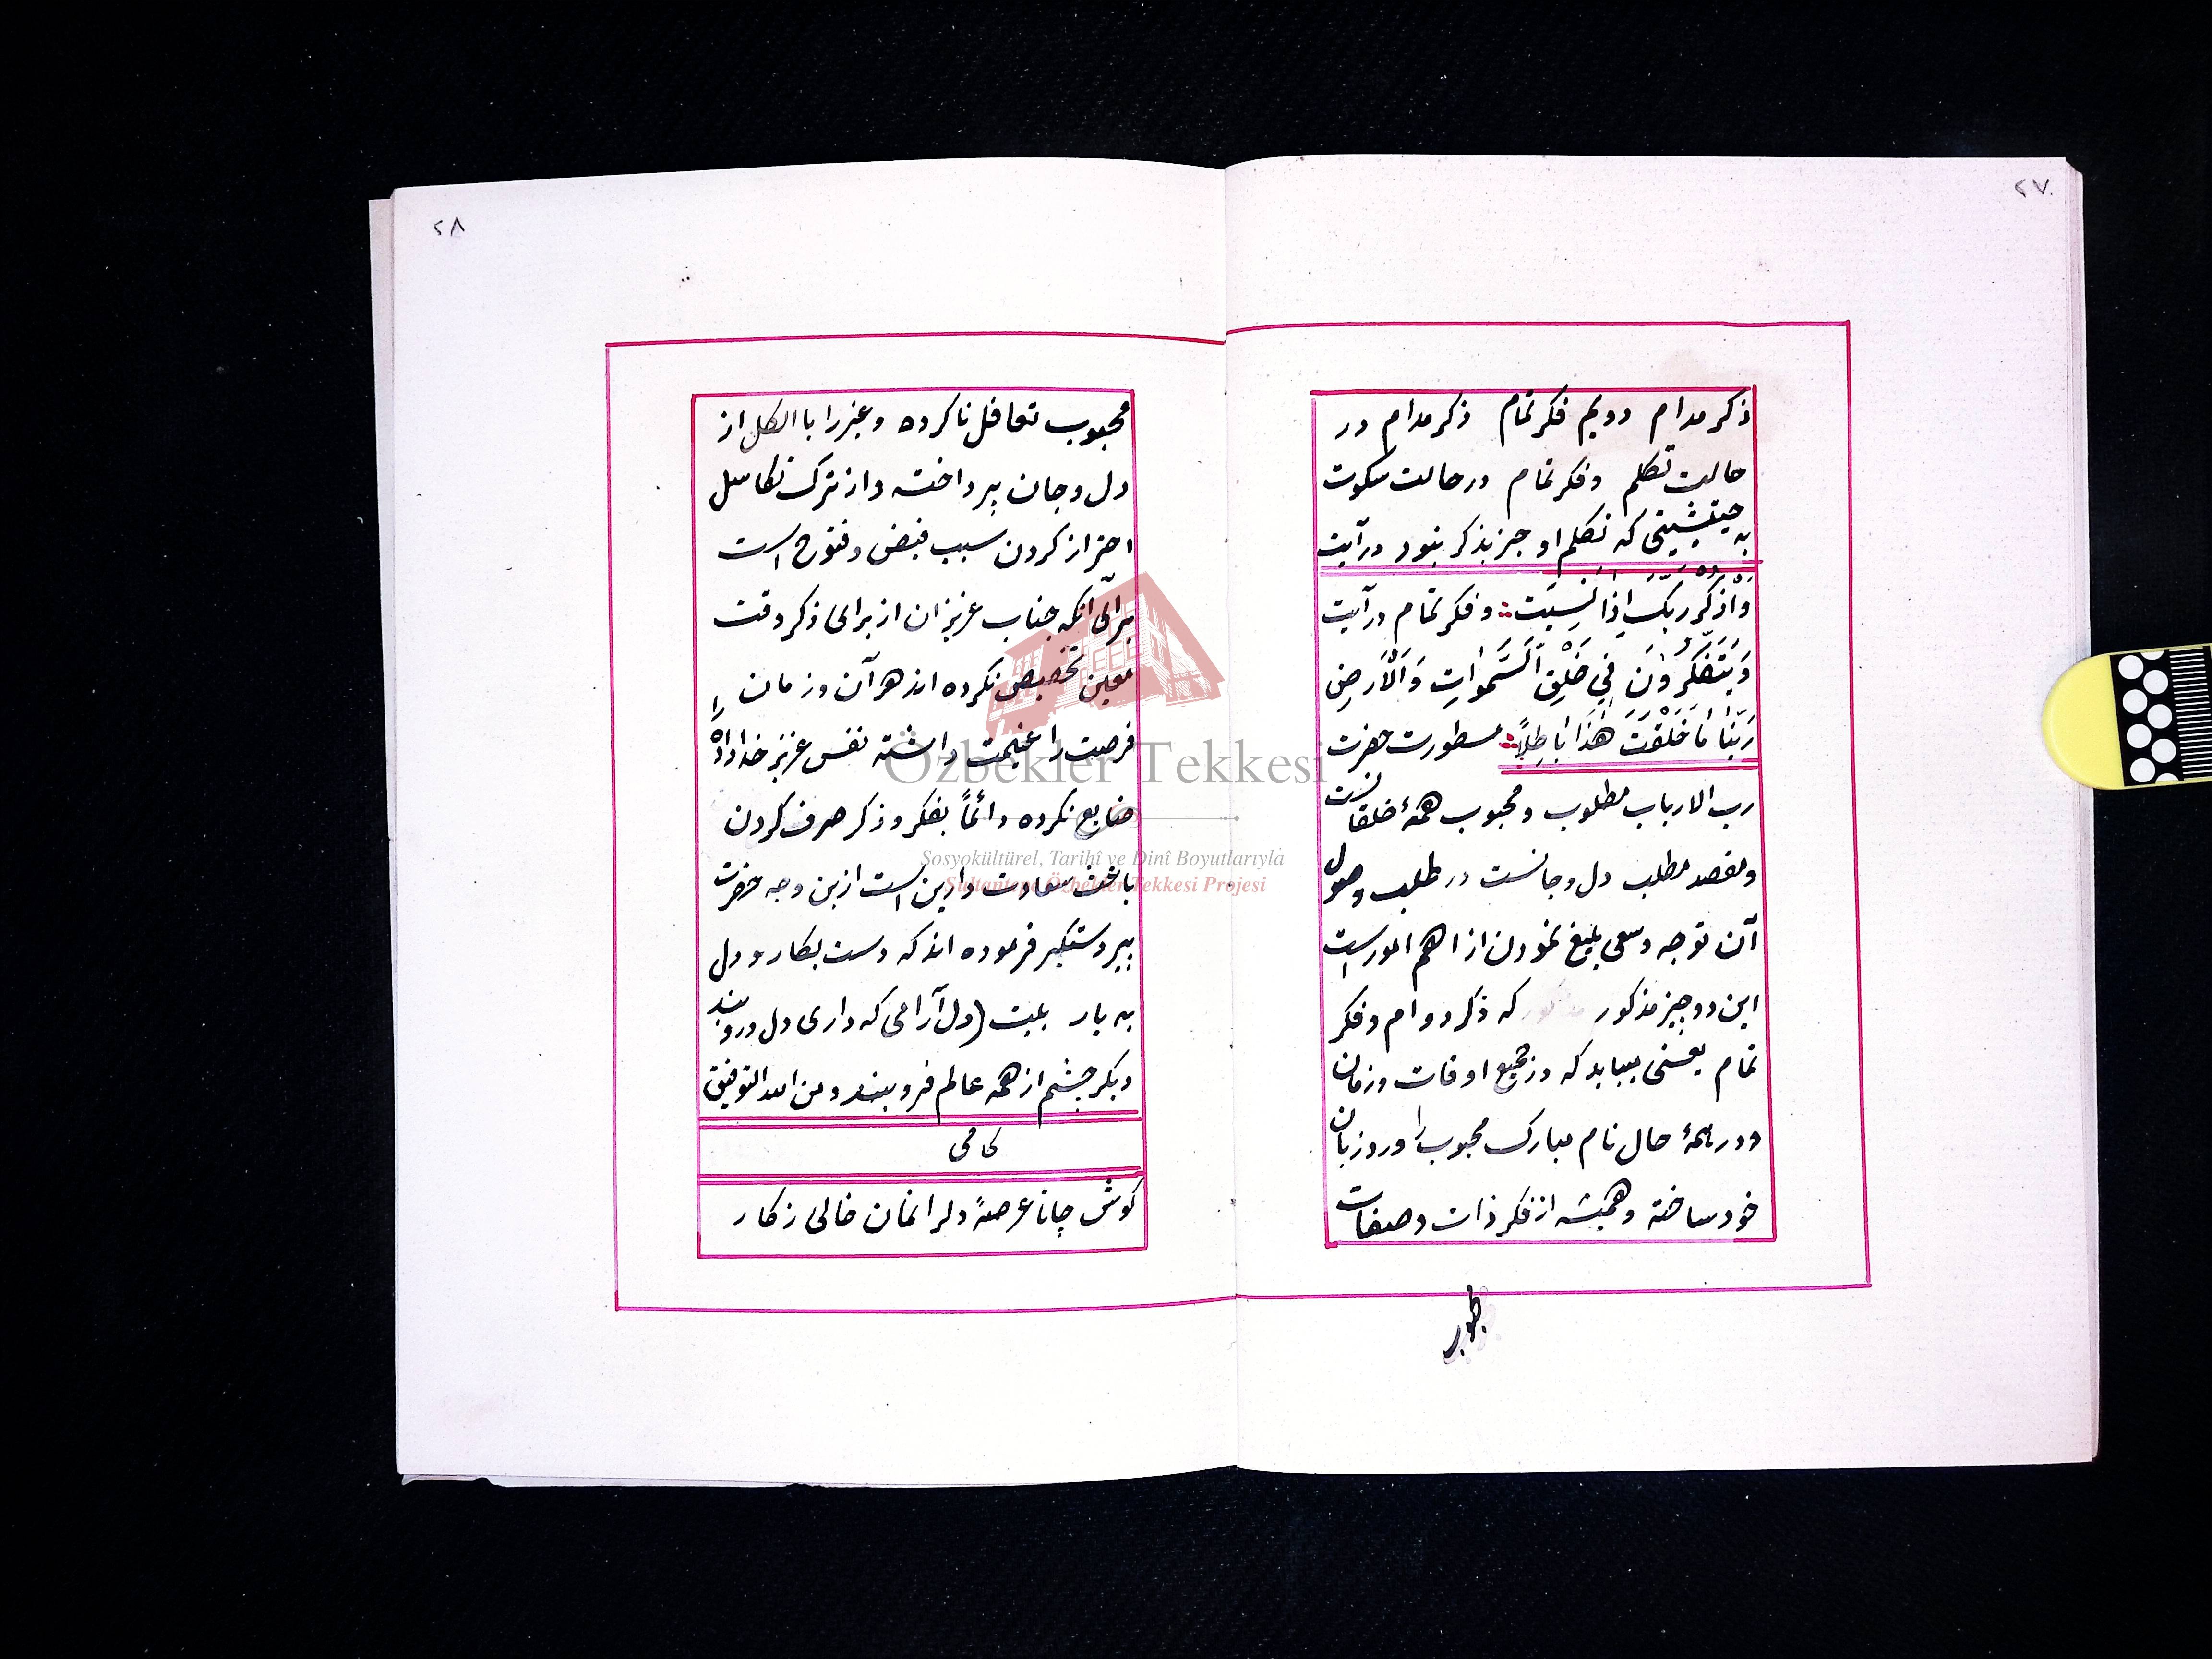 ۲۷
ذکر مدام دویم فکر تمام ذکر مدام در
حالت تکلم و فکر تمام در حالت سکوت
به حیثیتی که تکلم او جز بذکر نبود در آیت
وَاذْکُرْ رَبَّکَ اِذَا نَسِیتَ و فکر تمام در آیت
وَیَتَفَکَّرُونَ فِی خَلْقِ السَّمٰوَاتِ وَالْاَرْضِ
رَبَّنَا مَا خَلَقْتَ هٰذَا بَاطِلاً مسطورست حضرت
رب الارباب مطلوب و محبوب همهٔ خلقانست
و مقصد مطلب دل و جانست در طلب وصول
آن توجه و سعی بلیغ نمودن از اهم امورست
این دو چیز مذکور که ذکر دوام و فکر
تمام یعنی میباید که در جمیع اوقات و زمان
و در همهٔ حال نام مبارک محبوب را ورد زبان
خود ساخته و همیشه از فکر ذات و صفات
۲۸
محبوب تغافل ناکرده و غیر را با الکل از
دل و جان پرداخته و از ترک تکاسل
احتراز کردن سبب فیض و فتوح است
برای آنکه جناب عزیزان از برای ذکر وقت
معین تخصیص نکرده اند هر آن و زمان
فرصت را غنیمت داشته نفس عزیز خداداده را
ضایع نکرده دائماً بفکر و ذکر صرف کردن
باعث سعادت دارین است ازین وجه حضرت
پیر دستکیر فرموده اند که دست بکار و دل
به یار بیت (دل آرامی که داری دل درو بند
دیکر چشم از همه عالم فرو بند و من الله التوفیق
کامی
کوش جانا عرصهٔ دلرا نمان خالی ز کار
Özbekler Tekkesi
Sosyokültürel, Tarihî ve Dinî Boyutlarıyla
Sultantepe Özbekler Tekkesi Projesi